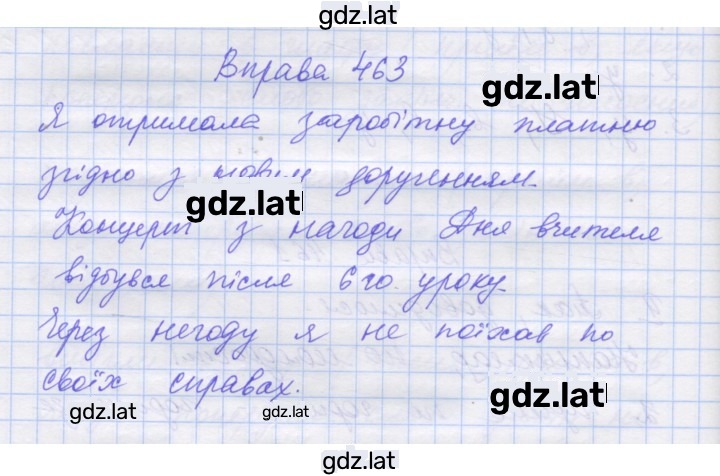 gdz.lat
Вправа 463
gdz.lat
Я отримала заробітну платню
згідно з дорученням.
gdz.lat
Концерт з нагоди Дня вчителя
відбувся після 6го. уроку.
Через негоду я не поїхав по
своїх справах.
gdz.lat
gdz.lat
gdz.lat
gdz.lat